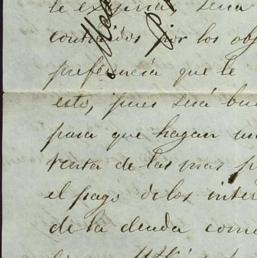 le
contraidos por los obj
preferencia que le
esto, pues será bue
para que hagan un
renta de las mas p
el pago de los inter
de la deuda com